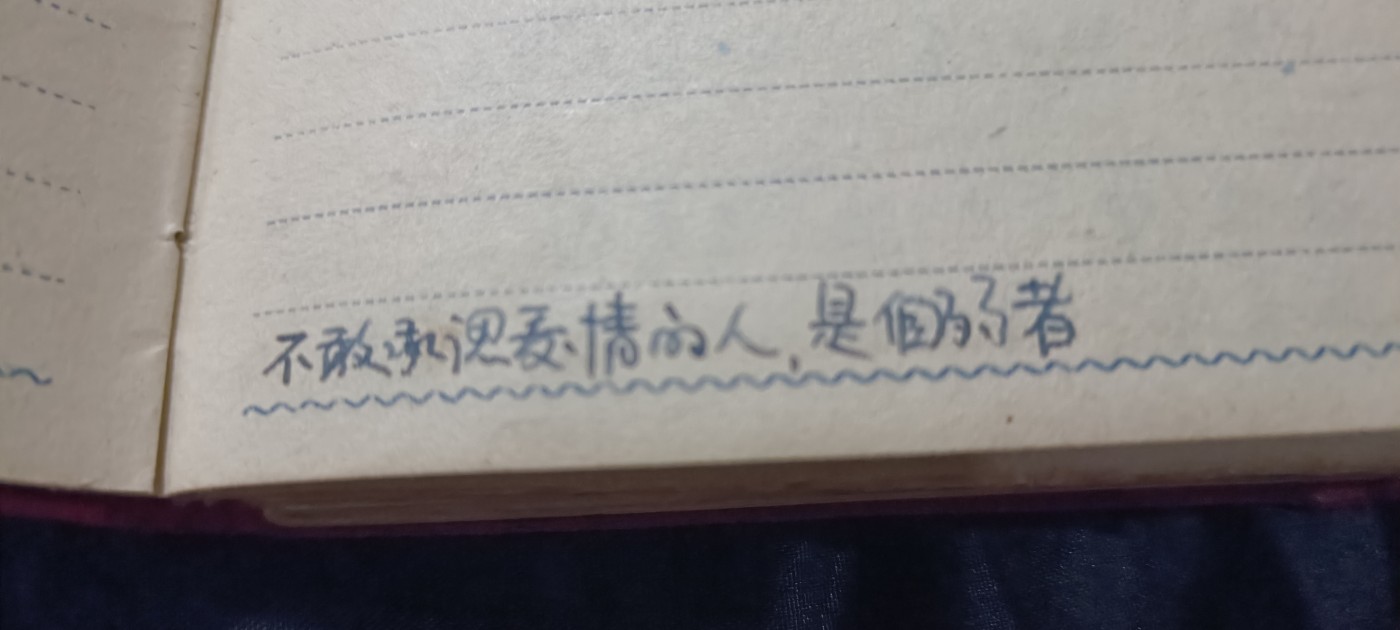 不敢承认爱情的人，是個弱者